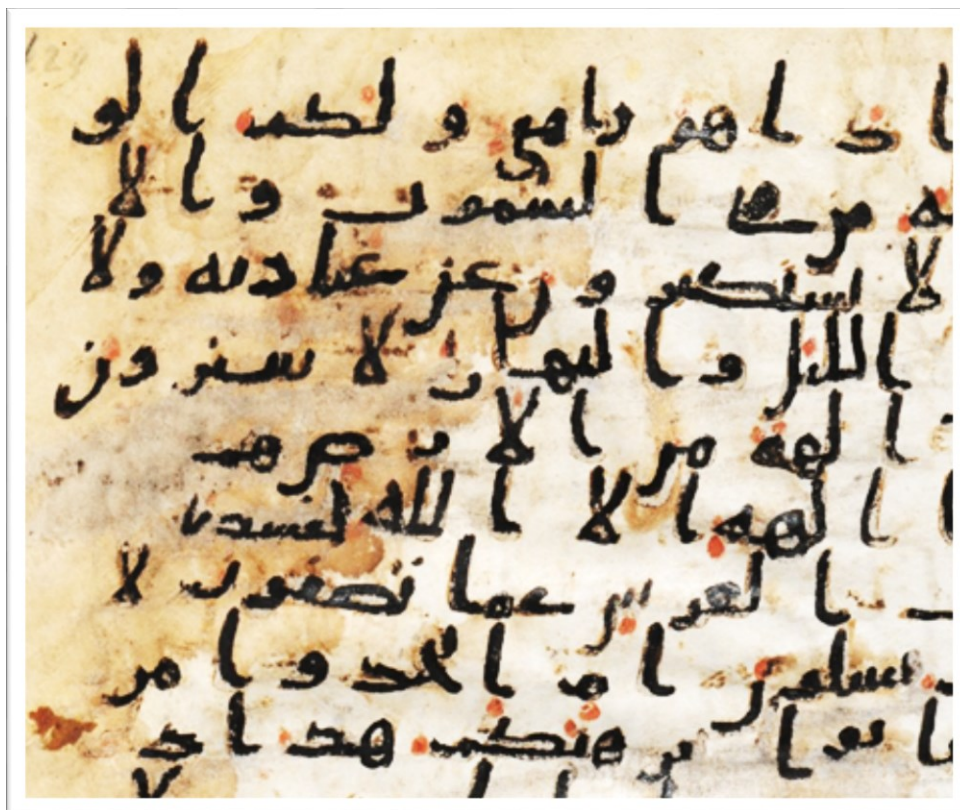 ا ذا هو زاهق ولكم الو
له من في السموت والا
لا يستكبرون عن عبادته ولا
الليل والنهار لا يفترون
الهة من الارض هم
الهة الا الله لفسدتا
العرش عما يصفون لا
يسلون ام اتخذوا من
توا برهنكم هذا ذ